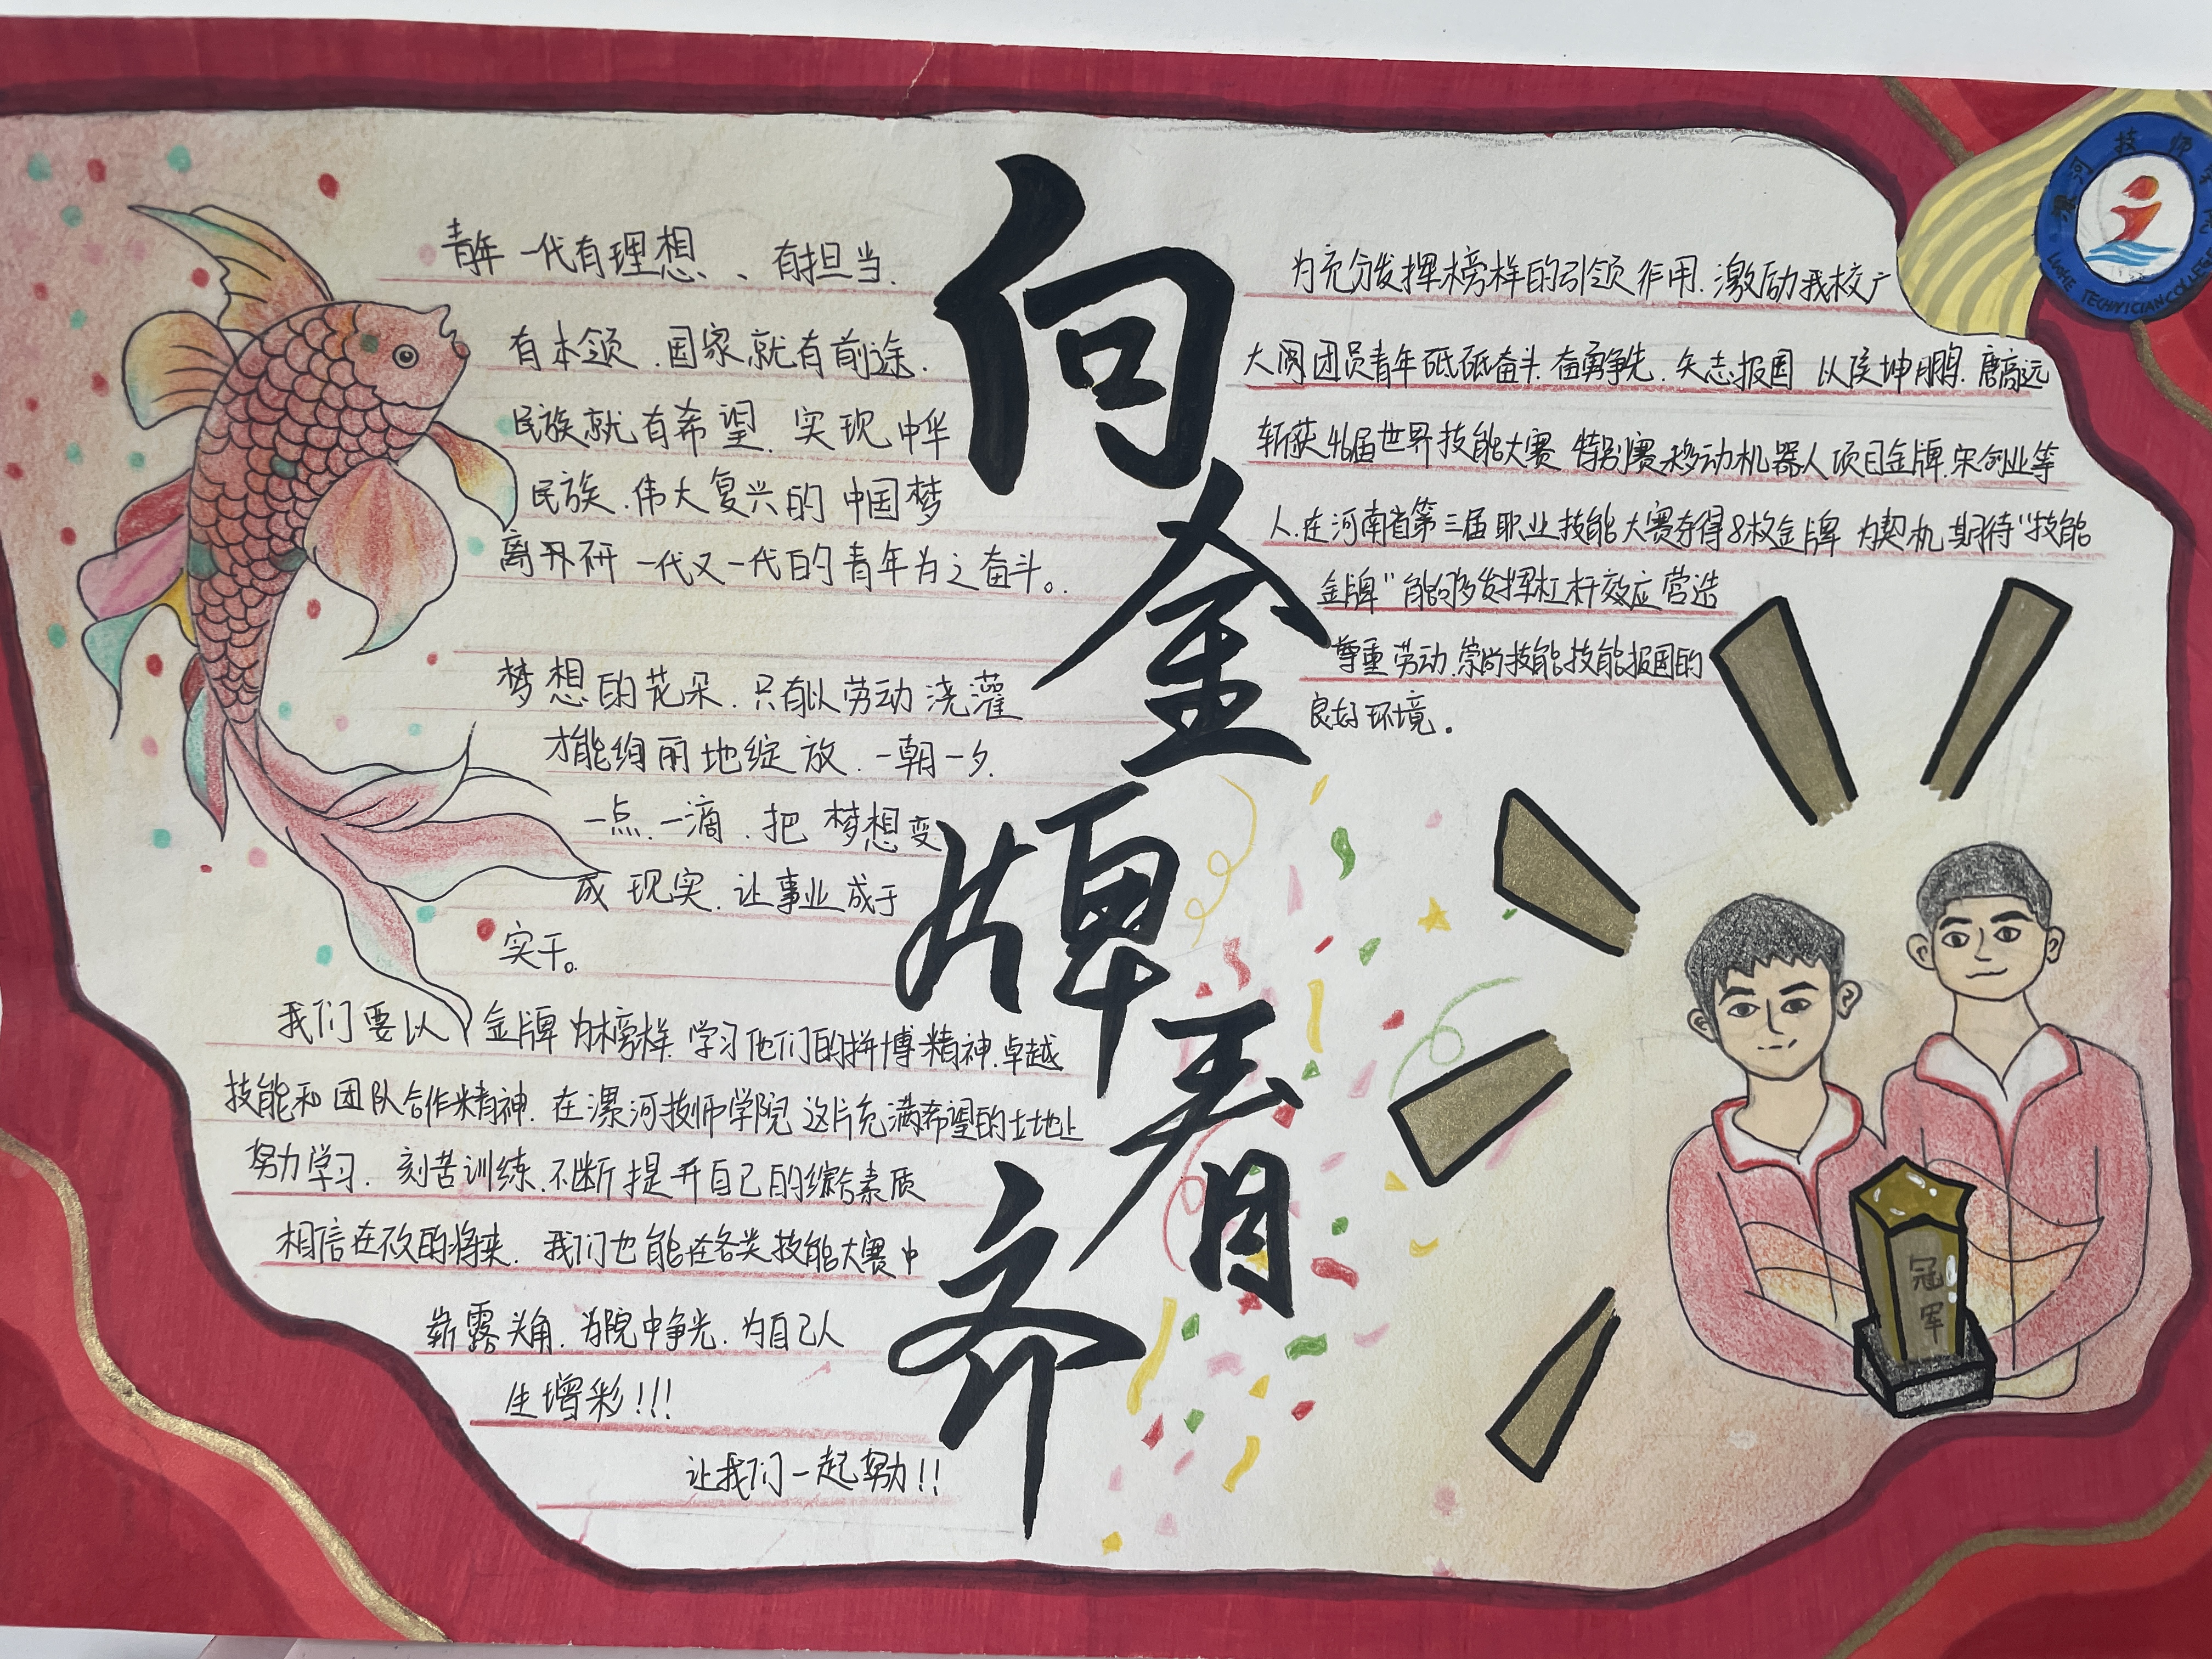 向金牌看齐
青年一代有理想、有担当.
有本领.国家就有前途.
民族就有希望.实现中华
民族.伟大复兴的中国梦
离不开 一代又一代的青年为之奋斗。
梦想的花朵.只有以劳动浇灌
才能绚丽地绽放.一朝一夕.
一点.一滴.把梦想变
成现实.让事业成于
实干。
我们要以 金牌为榜样.学习他们的拼搏精神.卓越
技能和团队合作精神.在漯河技师学院这片充满希望的土地上
努力学习.刻苦训练.不断提升自己的综合素质
相信在不久的将来.我们也能在各类技能大赛中
崭露头角.为院中争光.为自己人
生增彩!!!
让我们一起努力!!
为充分发挥榜样的引领作用.激励我校广
大团员青年砥砺奋斗.奋勇争先.矢志报国 以侯坤鹏.唐高远
斩获46届世界技能大赛特别赛移动机器人项目金牌.宋创业等
人.在河南省第三届职业技能大赛夺得8枚金牌 为契机 期待“技能
金牌”能够发挥杠杆效应营造
尊重劳动.崇尚技能.技能报国的
良好环境.
漯河技师学院
LUOHE TECHNICIAN COLLEGE
冠军